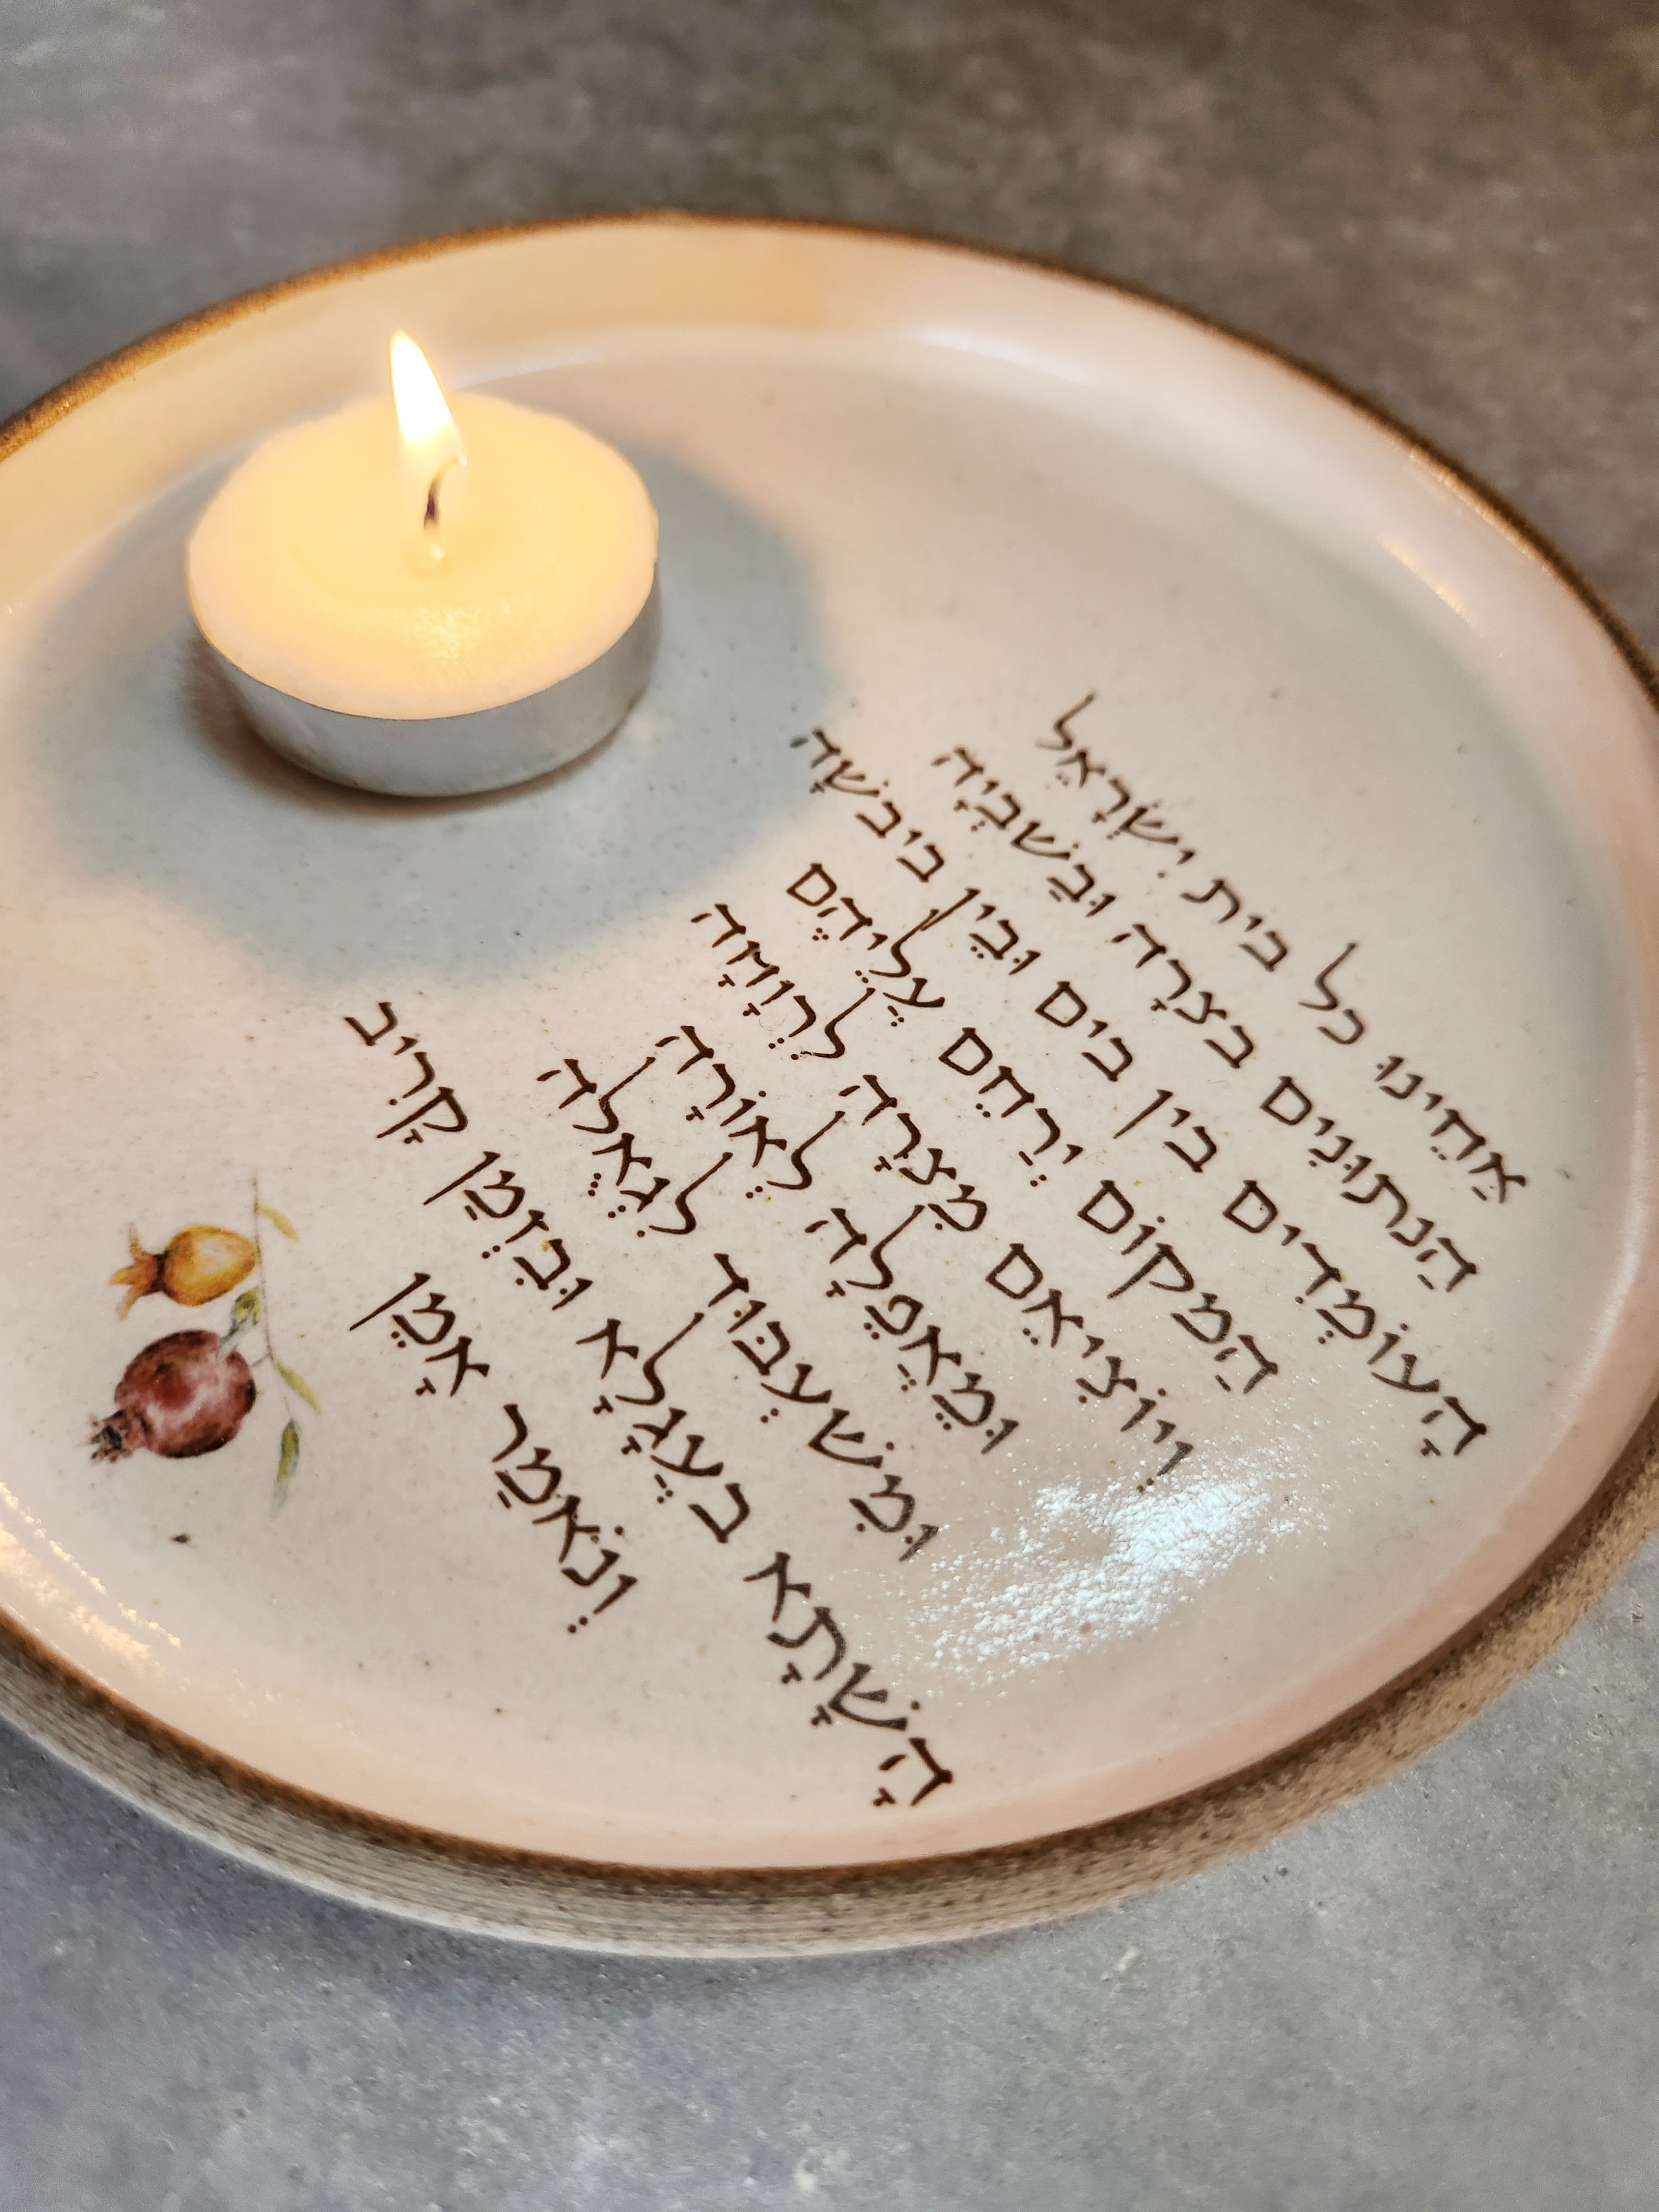 אַחֵינוּ כל בית יִשְׂרָאֶל
הַנתוּנִים בצרָה וּבַשִׁבְיָה
הָעוֹמְדִים בין בים וּבֵין ביבשָׁה
הַמקוֹם יְרַחֵם עֲלֵיהֶם
וְיוֹצִיאֵם מִצרָה לִרְוָוחָה
וּמֵאֲפֵלָה לְאוֹרָה
וּמִשִׁעְבּוּד לִגְאֻלה
הָשְׁתָא בַעֲגָלָא וּבִזְמַן קָרִיב
וְנֹאמַר אָמֵן